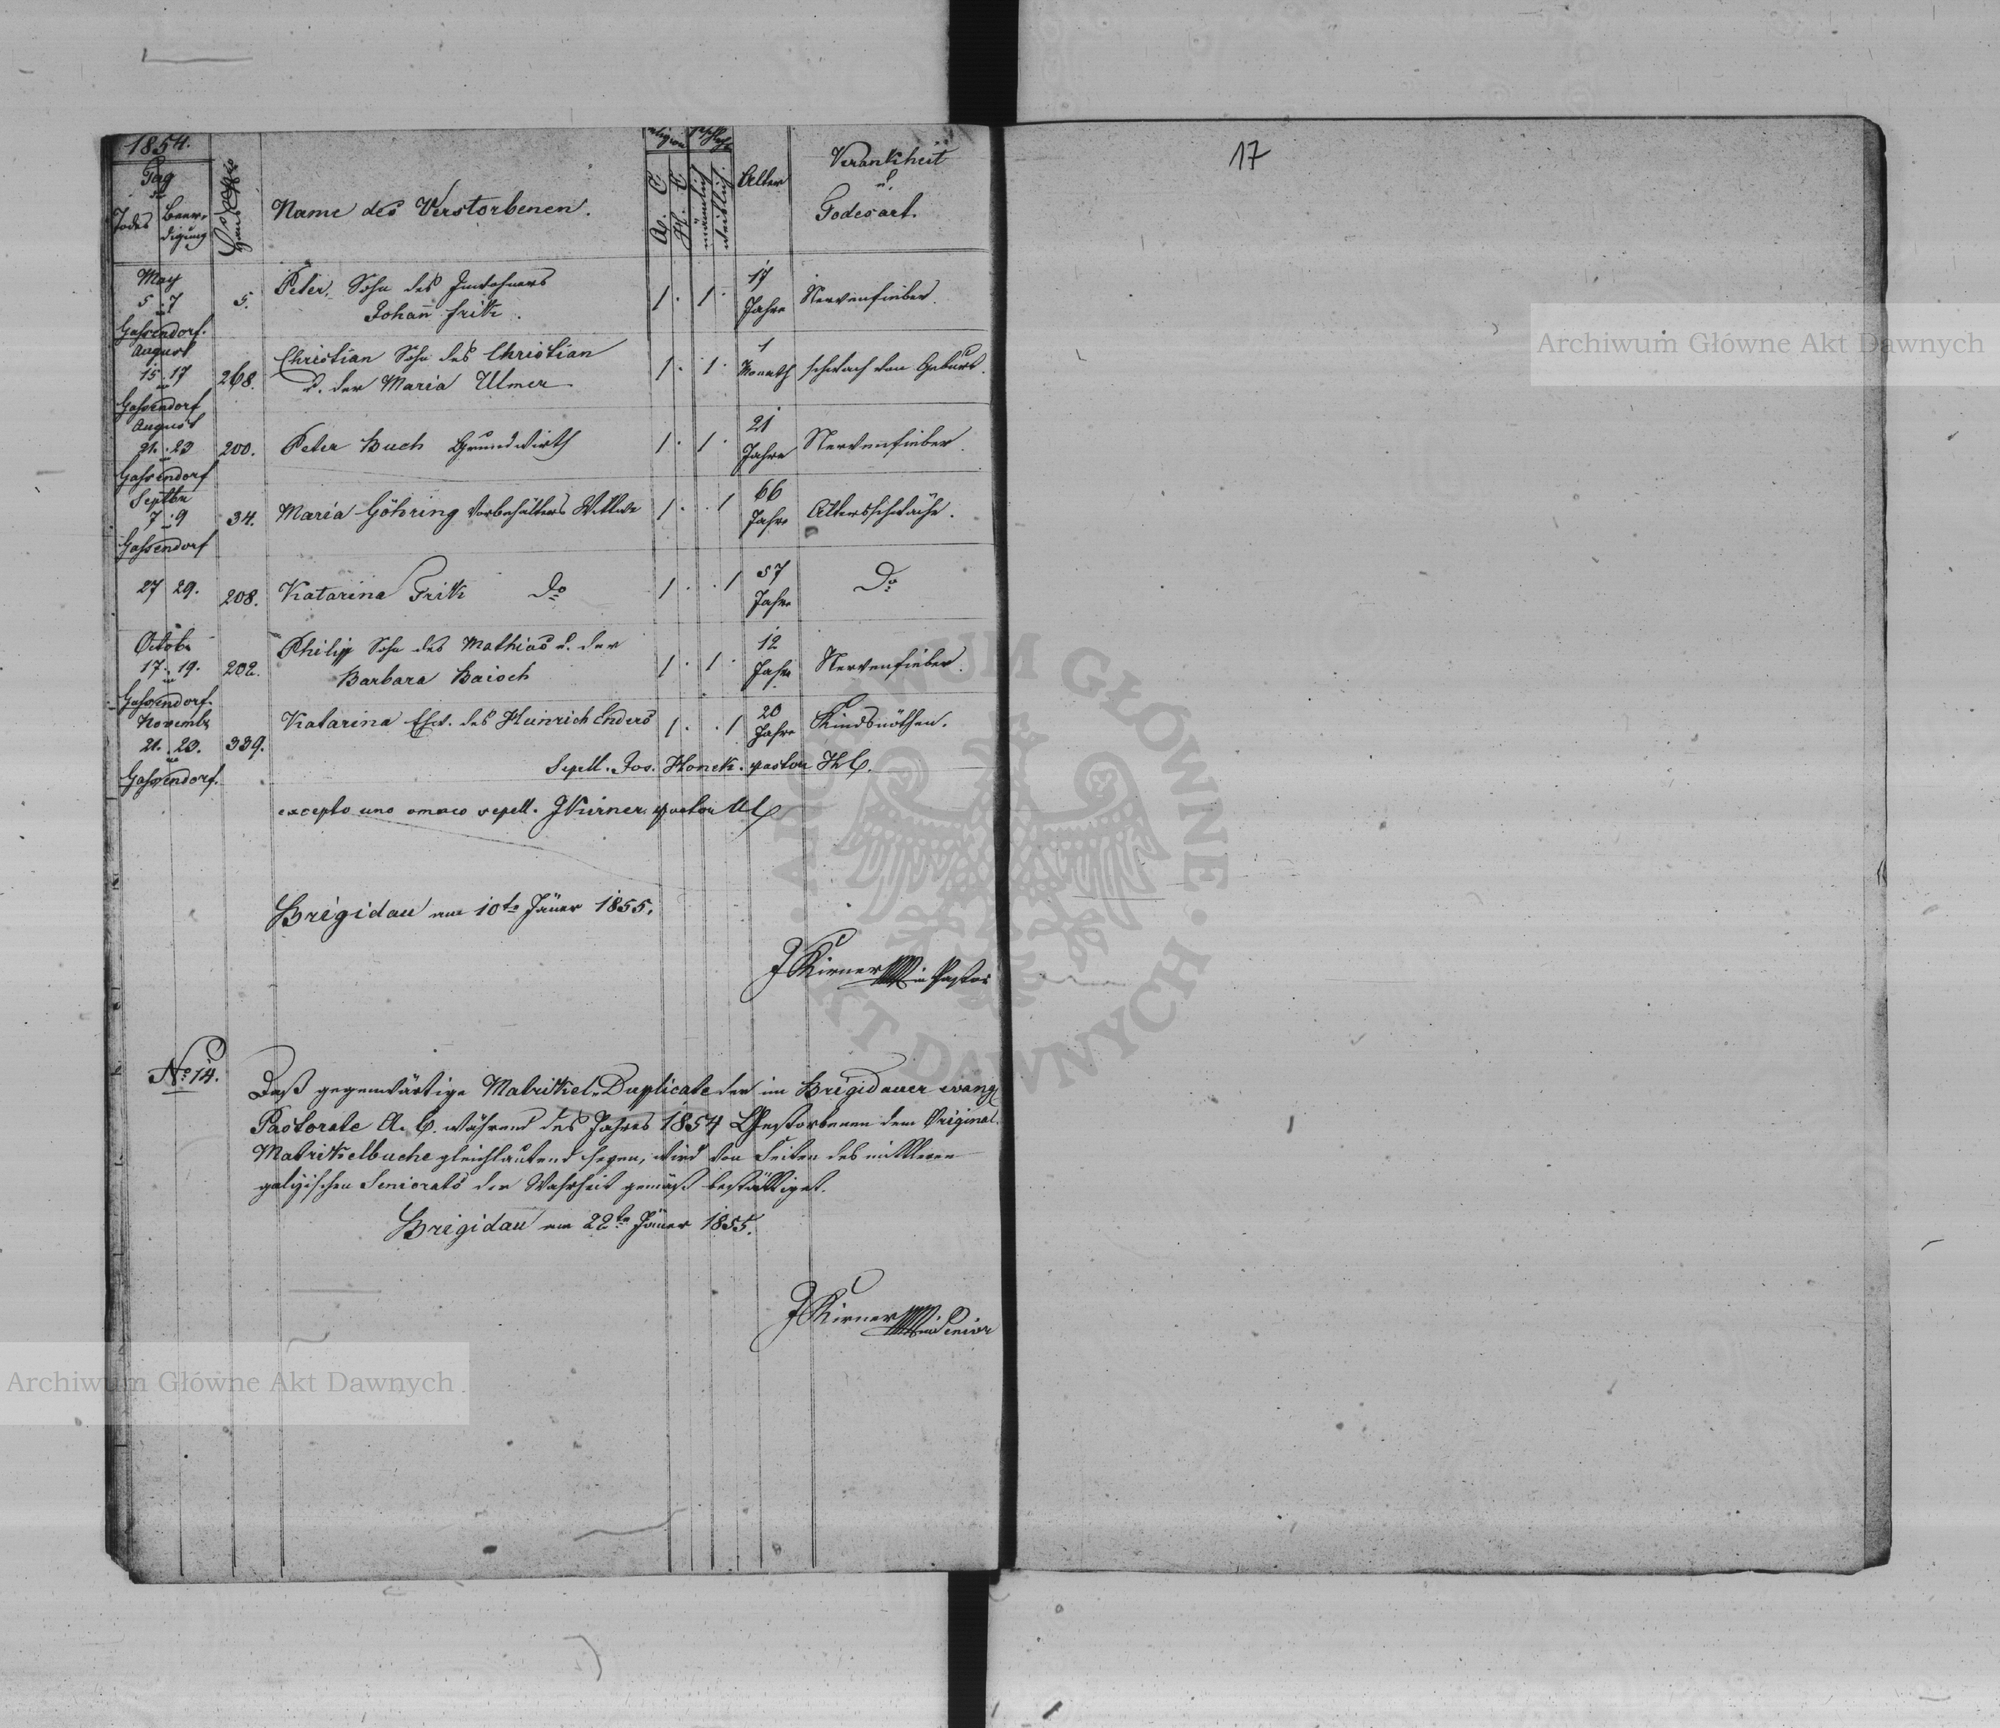 1854.
Tag
des
Todes
Beer-
digung
Name des Verstorbenen.
A. C.
H. C.
männlich
weiblich
Alter
Krankheit
u.
Todesart.
May
5. 7
in
Gassendorf.
5.
Peter, Sohn des Inwohners
Johañ Fritz.
1 . 1 .
17
Jahre
Nervenfieber.
August
15. 17
in
Gassendorf
268.
Christian Sohn des Christian
u. der Maria Ulmer
1 . 1 .
1
Monath
schwach von Geburt.
August
21. 23
in
Gassendorf
200.
Peter Buch Grundwirth
1 . 1 .
21
Jahre
Nervenfieber.
Septbr
7. 9
in
Gassendorf
34.
Maria Göhring Vorbehälters Wittwe
1 . . 1
66
Jahre
Altersschwäche.
27 29.
208.
Katarina Fritz do
1 . . 1
57
Jahre
Do
Octobr
17. 19.
in
Gassendorf.
202.
Philipp Sohn des Mathias u. der
Barbara Baisch
1 . 1 .
12
Jahre
Nervenfieber.
Novembr
21. 23.
in
Gassendorf.
339.
Katarina Ehw. des Heinrich Enders
1 . . 1
20
Jahre
Kindsnöthen.
Sepell. Jos. Honek. pastor HC.
excepto uno sepell. JKirner pastor AC
Brigidau am 10te Jäner 1855.
JKirner Pastor
No 14.
Daß gegenwärtige Matrikel-Duplicate der im Brigidauer evang
Pastorate A. C. während des Jahres 1854 Verstorbenen dem Original
Matrikelbuche gleichlautend seyen, wird von Seiten des mittleren
galizischen Seniorats der Wahrheit gemäß bestättiget.
Brigidau am 22te Jäner 1855.
JKirner Senior
17
Archiwum Główne Akt Dawnych
Archiwum Główne Akt Dawnych
ARCHIWUM GŁÓWNE · AKT DAWNYCH ·